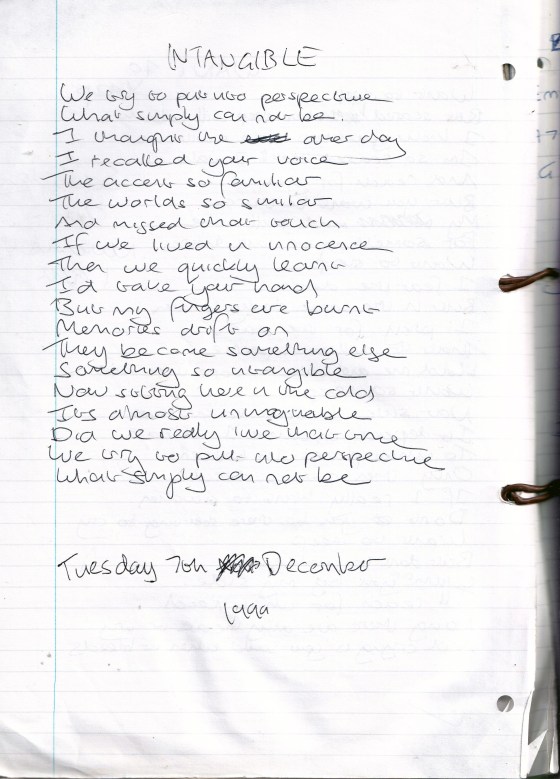 INTANGIBLE
We try to put into perspective
What simply can not be.
I thought the other day
I recalled your voice
The accent so familiar
The worlds so similar
And missed that touch
If we lived in innocence
Then we quickly learnt
I'd take your hand
But my fingers are burnt
Memories drift on
They become something else
Something so intangible
Now sitting here in the cold
Its almost unimaginable
Did we really live that once
We try to put into perspective
What simply can not be
Tuesday 7th December
1999